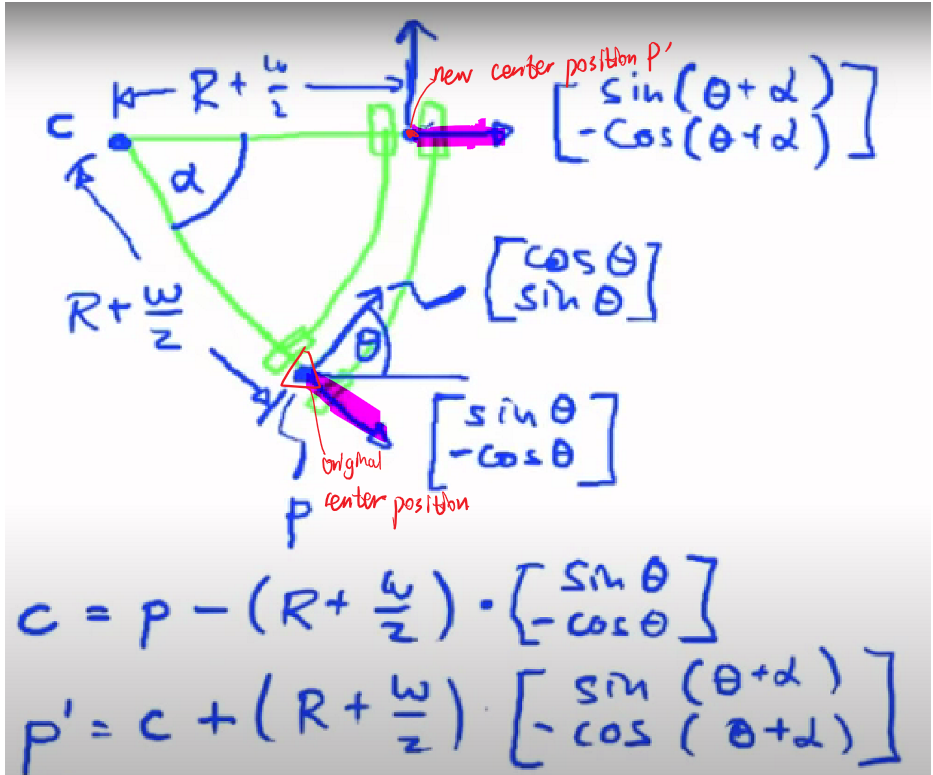 new center position P'
R + w/2
[sin(θ+α)
-cos(θ+α)]
C
α
[cos θ
sin θ]
R + w/2
θ
[sin θ
-cos θ]
original
center position
P
C = P - (R + w/2) · [sin θ
-cos θ]
P' = C + (R + w/2) · [sin (θ+α)
-cos (θ+α)]